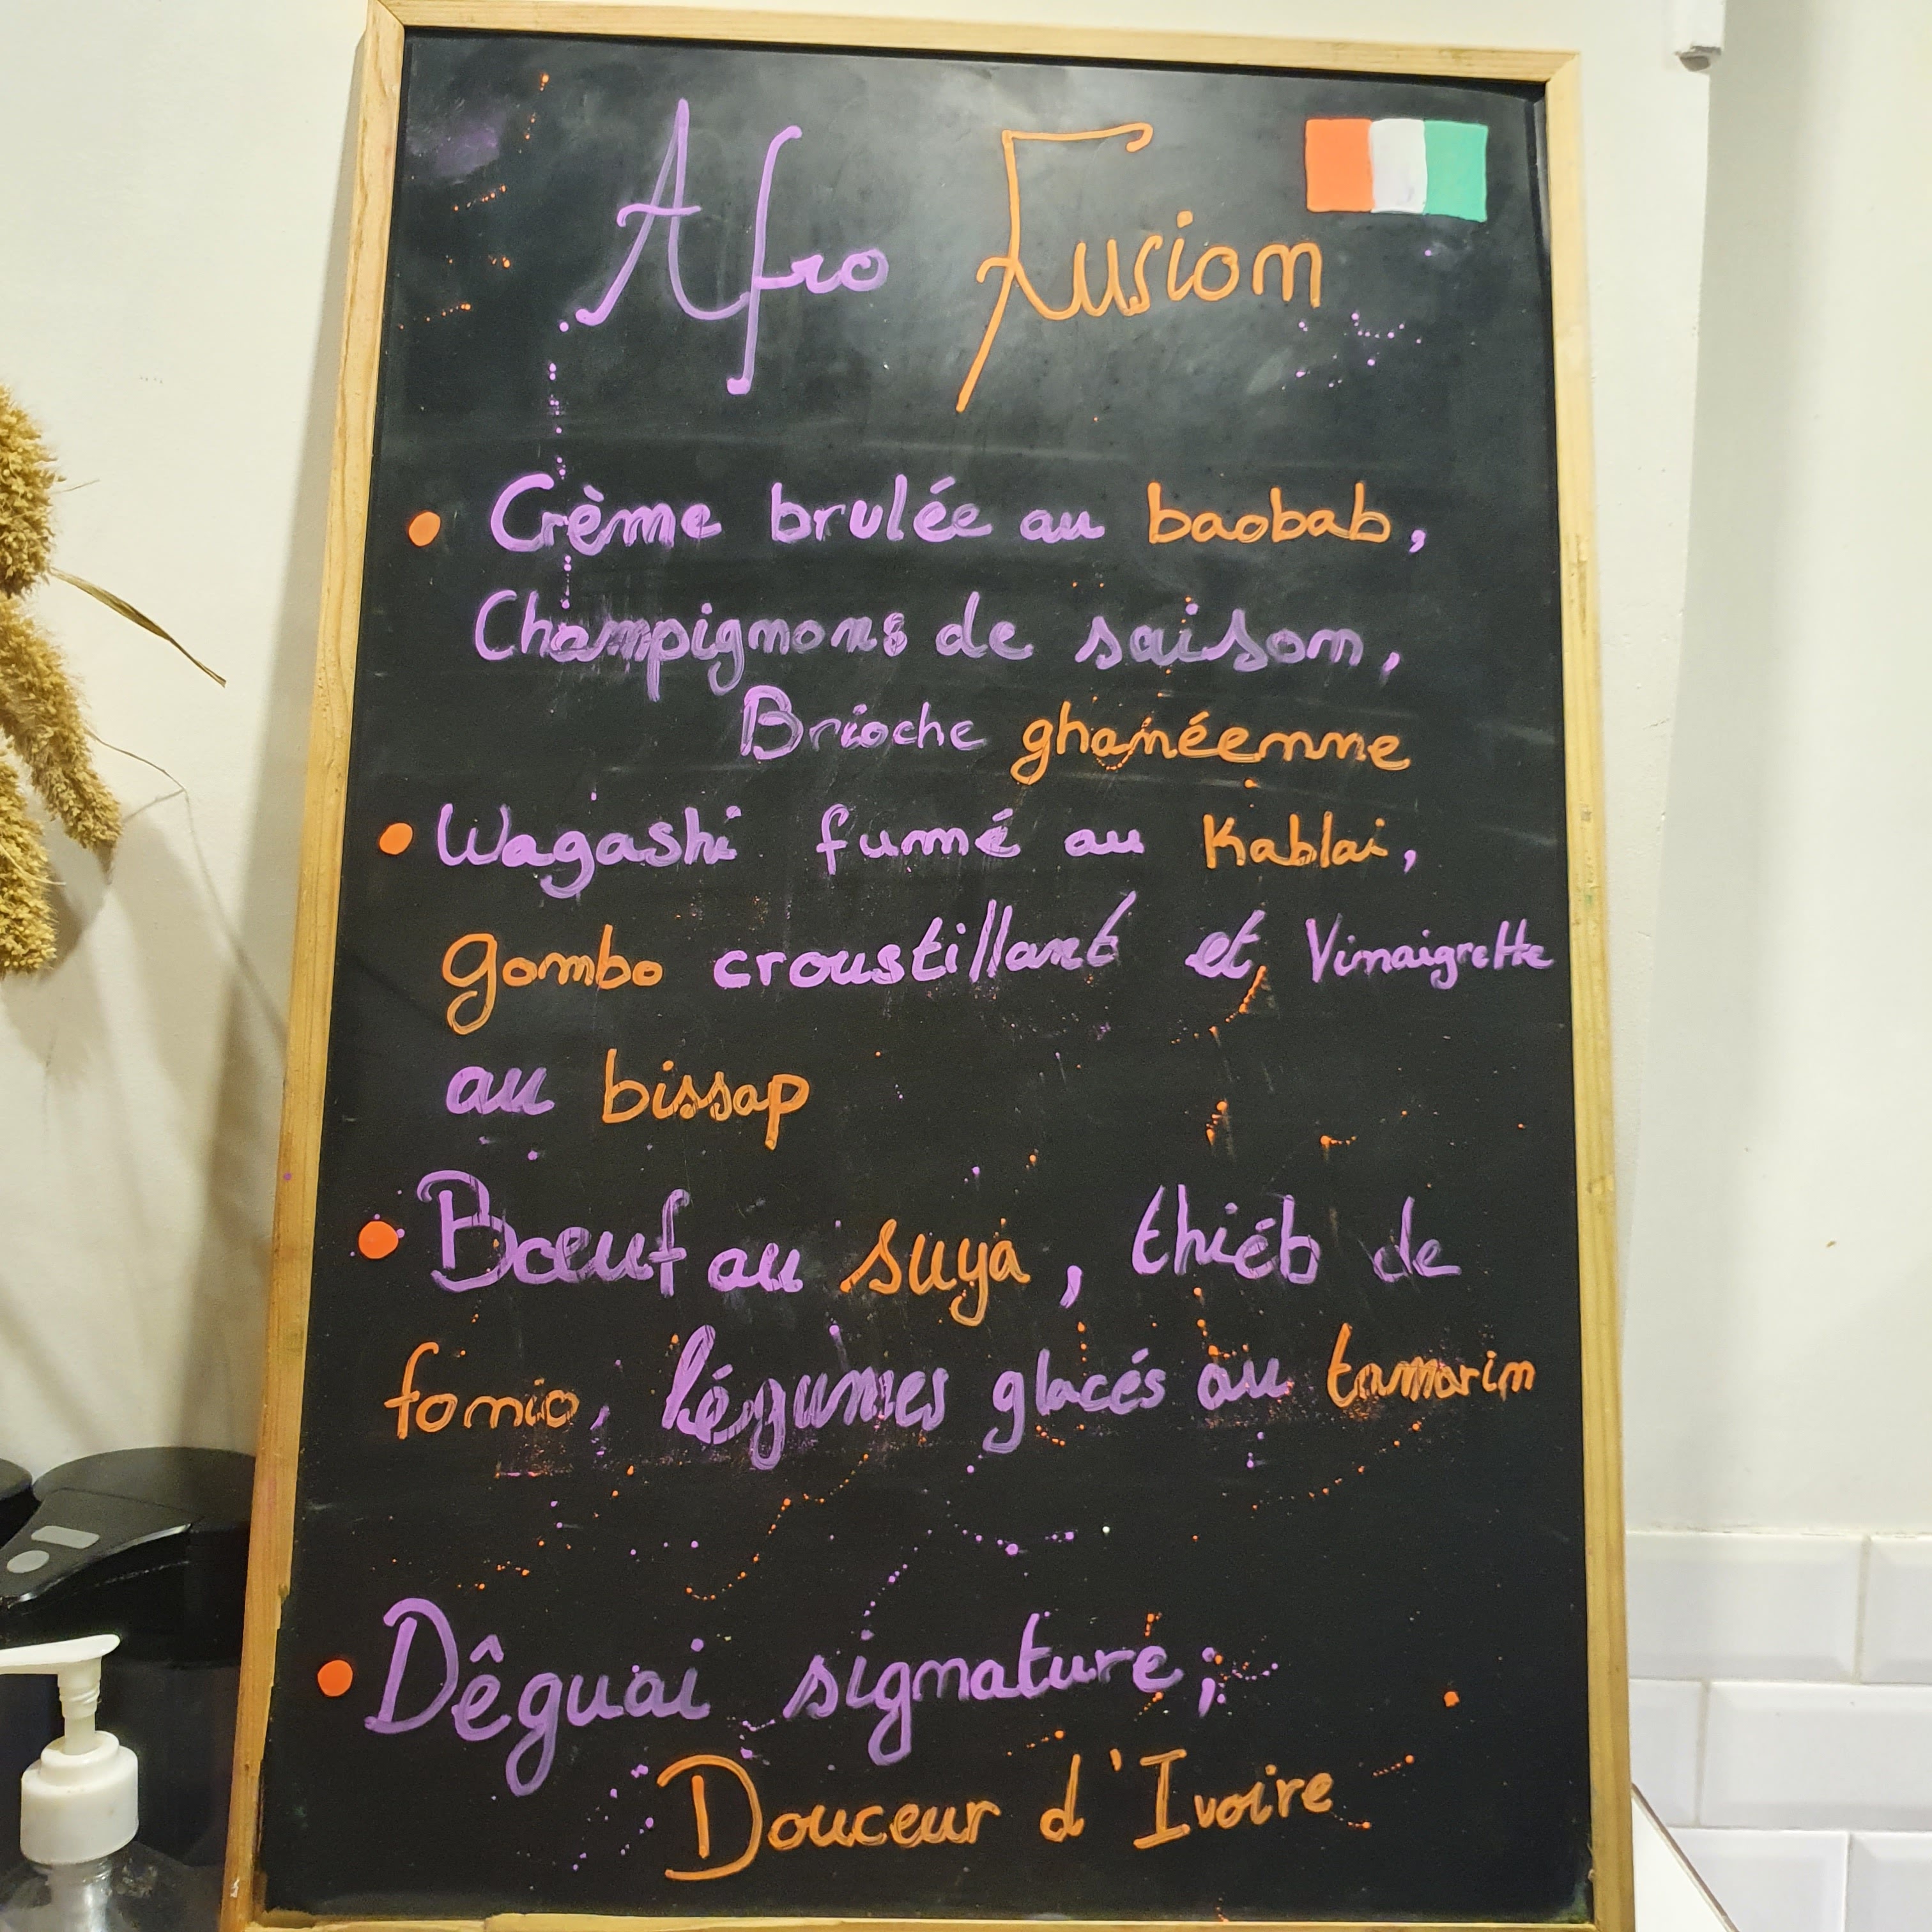 Afro Fusion
Crème brulée au baobab,
Champignons de saison,
Brioche ghanéenne
Wagashi fumé au Kablai,
gombo croustillant et Vinaigrette
au bissap
Bœuf au suya, thiéb de
fonio, légumes glacés au tamarin
Dêguai signature;
Douceur d'Ivoire